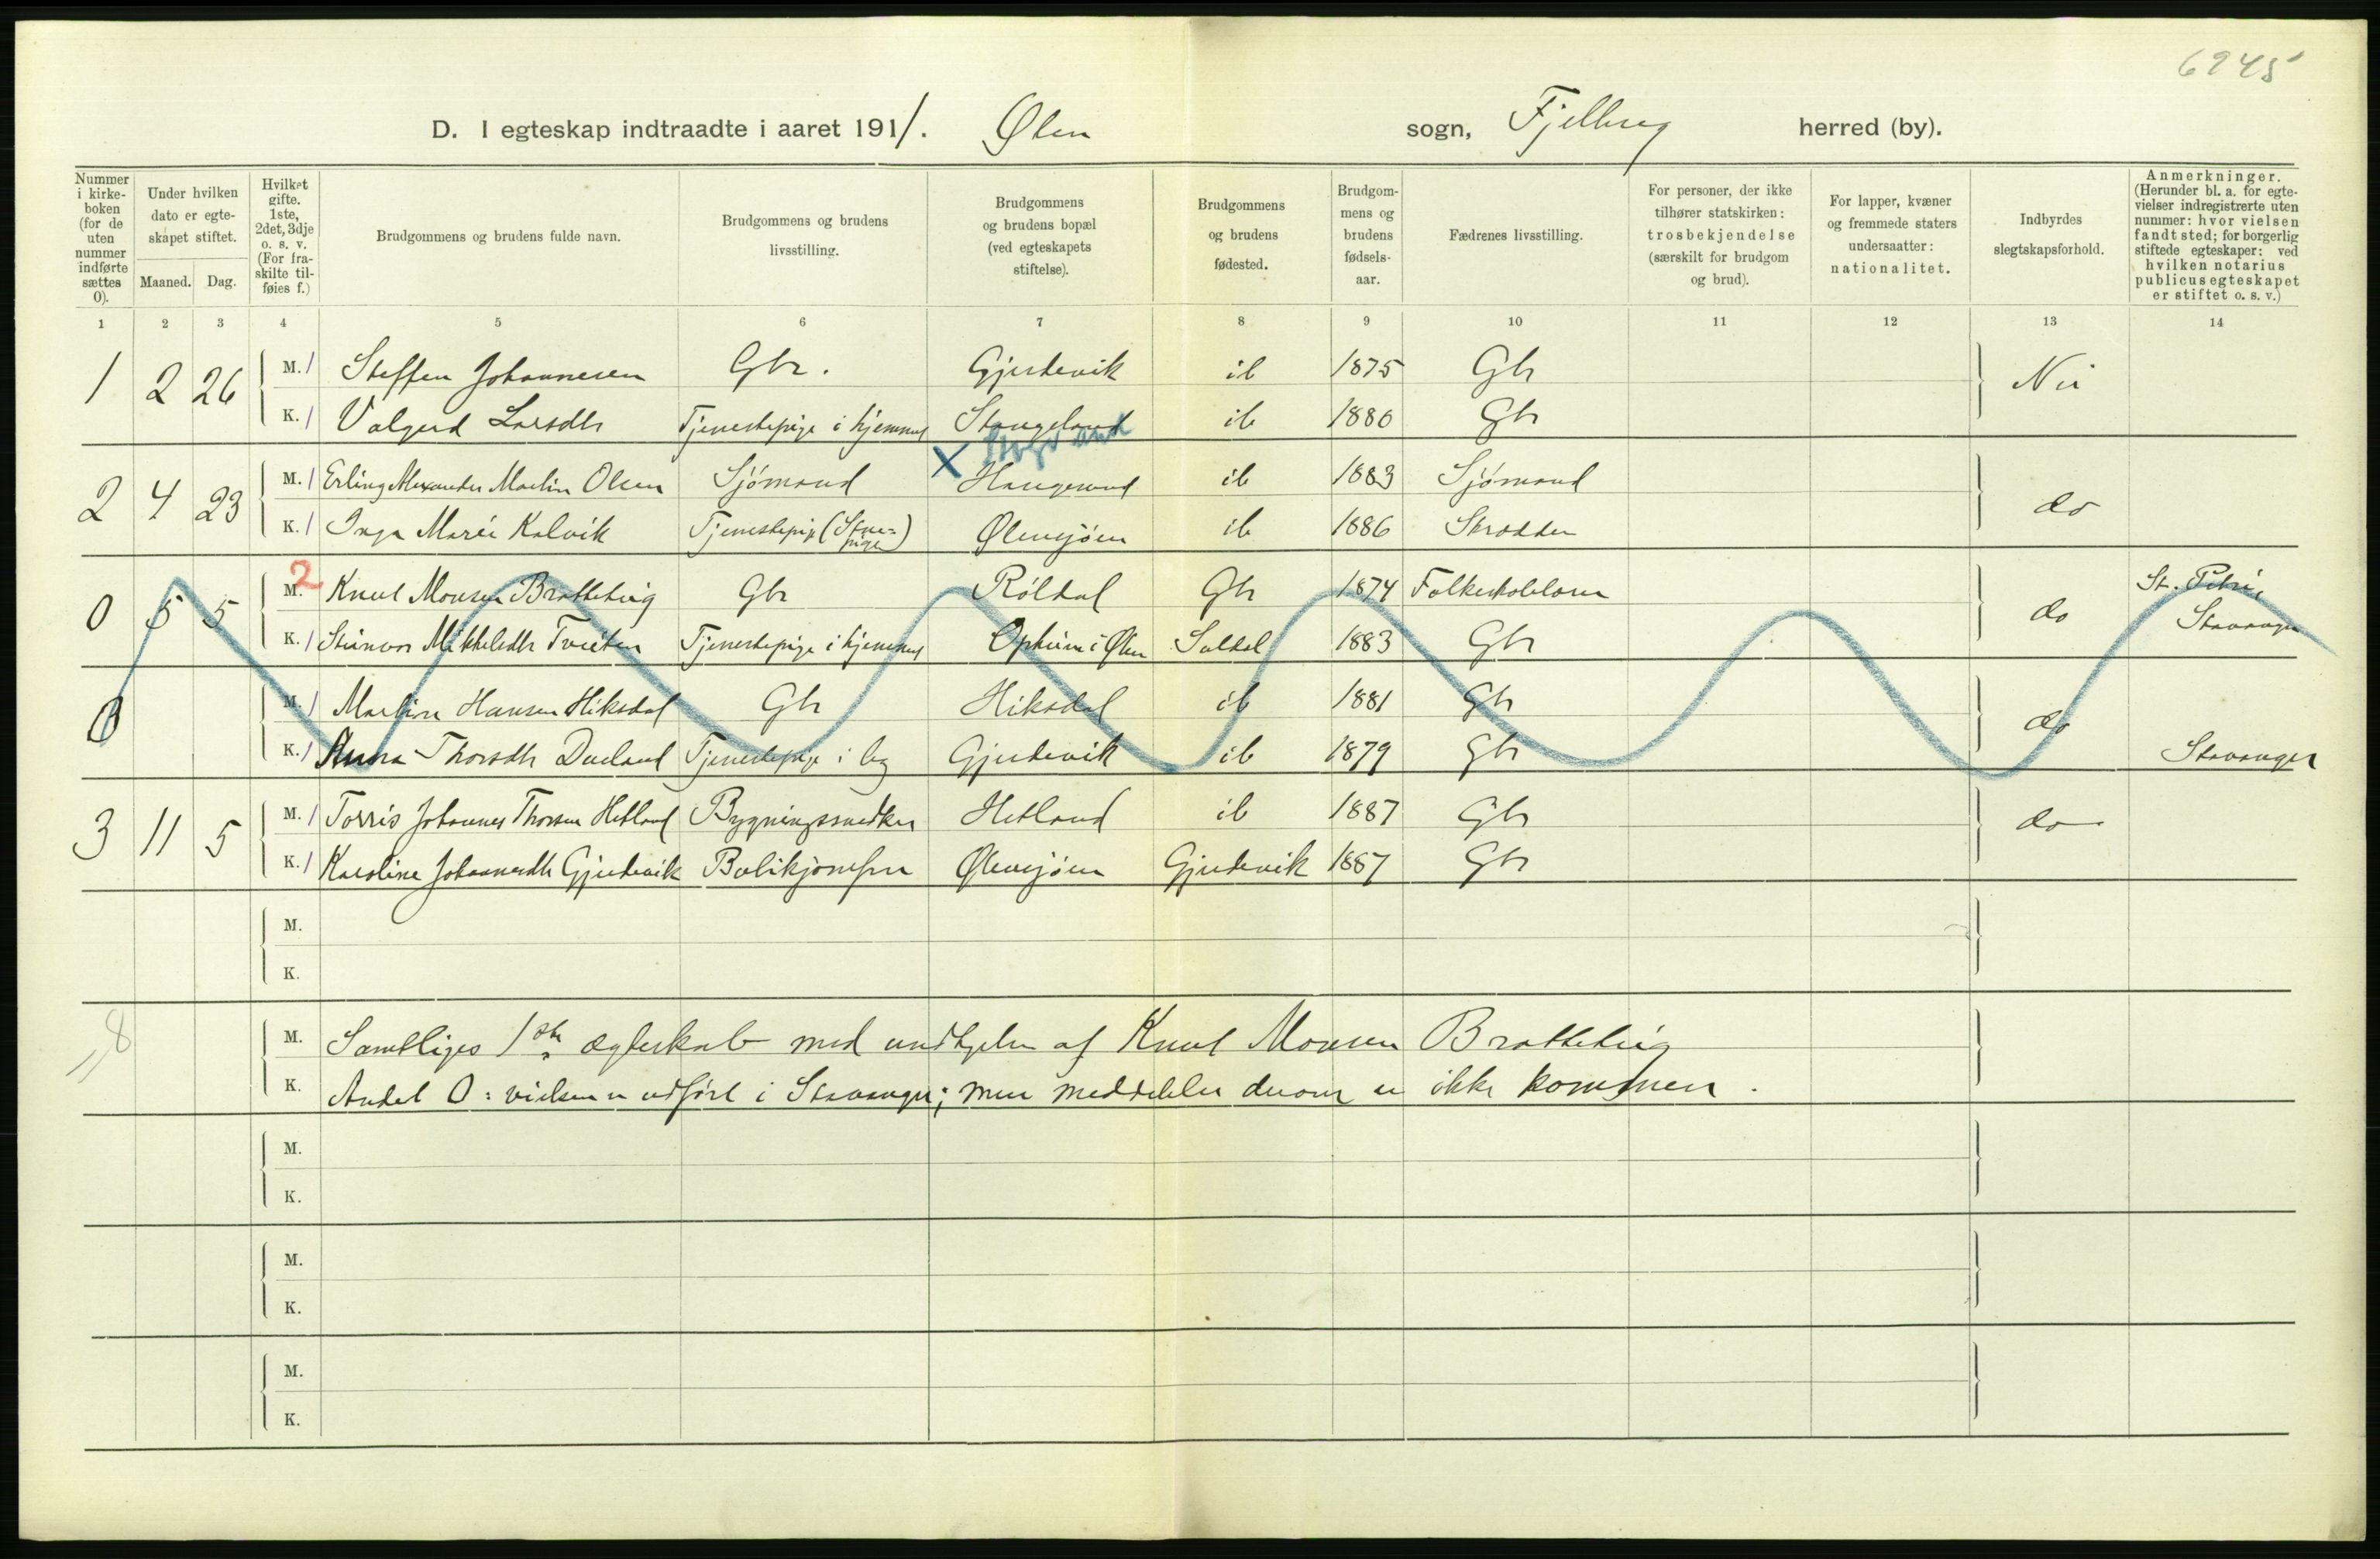 6245
D. I egteskap indtraadte i aaret 1911. Ølen sogn, Fjelberg herred (by).
Nummer i kirkeboken (for de uten nummer indførte sættes 0).
Under hvilken dato er egteskapet stiftet.
Maaned. Dag.
Hvilket gifte. 1ste, 2det, 3dje o. s. v. (For fraskilte tilføies f.)
Brudgommens og brudens fulde navn.
Brudgommens og brudens livsstilling.
Brudgommens og brudens bopæl (ved egteskapets stiftelse).
Brudgommens og brudens fødested.
Brudgommens og brudens fødselsaar.
Fædrenes livsstilling.
For personer, der ikke tilhører statskirken: trosbekjendelse (særskilt for brudgom og brud).
For lapper, kvæner og fremmede staters undersaatter: nationalitet.
Indbyrdes slegtskapsforhold.
Anmerkninger. (Herunder bl. a. for egtevielser indregistrerte uten nummer: hvor vielsen fandt sted; for borgerlig stiftede egteskaper: ved hvilken notarius publicus egteskapet er stiftet o. s. v.)
1 2 3 4 5 6 7 8 9 10 11 12 13 14
1 2 26 M. 1 Steffen Johannesen Gbr. Gjerdevik ib 1875 Gbr Nei
K. 1 Valgerd Larsdtr Tjenestepige i hjemmet Stangeland ib 1880 Gbr
2 4 23 M. 1 Erling Alexander Martin Olsen Sjömand X Haugesund ib 1883 Sjömand do
K. 1 Inga Marie Kalvik Tjenestepige (Stuepige) Ølensjöen ib 1886 Skrædder
0 5 5 M. 2 Knut Monsen Bratteteig Gbr Röldal Gbr 1874 Folkeskolelærer do St. Petri, Stavanger
K. 1 Steinvor Mikkelsdtr Tveiten Tjenestepige i hjemmet Opheim i Ølen Suldal 1883 Gbr
0 M. 1 Martin Hansen Hiksdal Gbr Hiksdal ib 1881 Gbr do
K. 1 Anna Thorsdtr Dueland Tjenestepige i by Gjerdevik ib 1879 Gbr Stavanger
3 11 5 M. 1 Torris Johannes Thorsen Hetland Bygningssnedker Hetland ib 1887 Gbr do
K. 1 Karoline Johannesdtr Gjerdevik Butikjomfru Ølensjöen Gjerdevik 1887 Gbr
M.
K.
8
M. Samtliges 1ste ægteskab med undtagelse af Knut Monsen Bratteteig
K. Andet 0: vielsen er udfört i Stavanger; men meddelelse derom er ikke kommen.
M.
K.
M.
K.
M.
K.